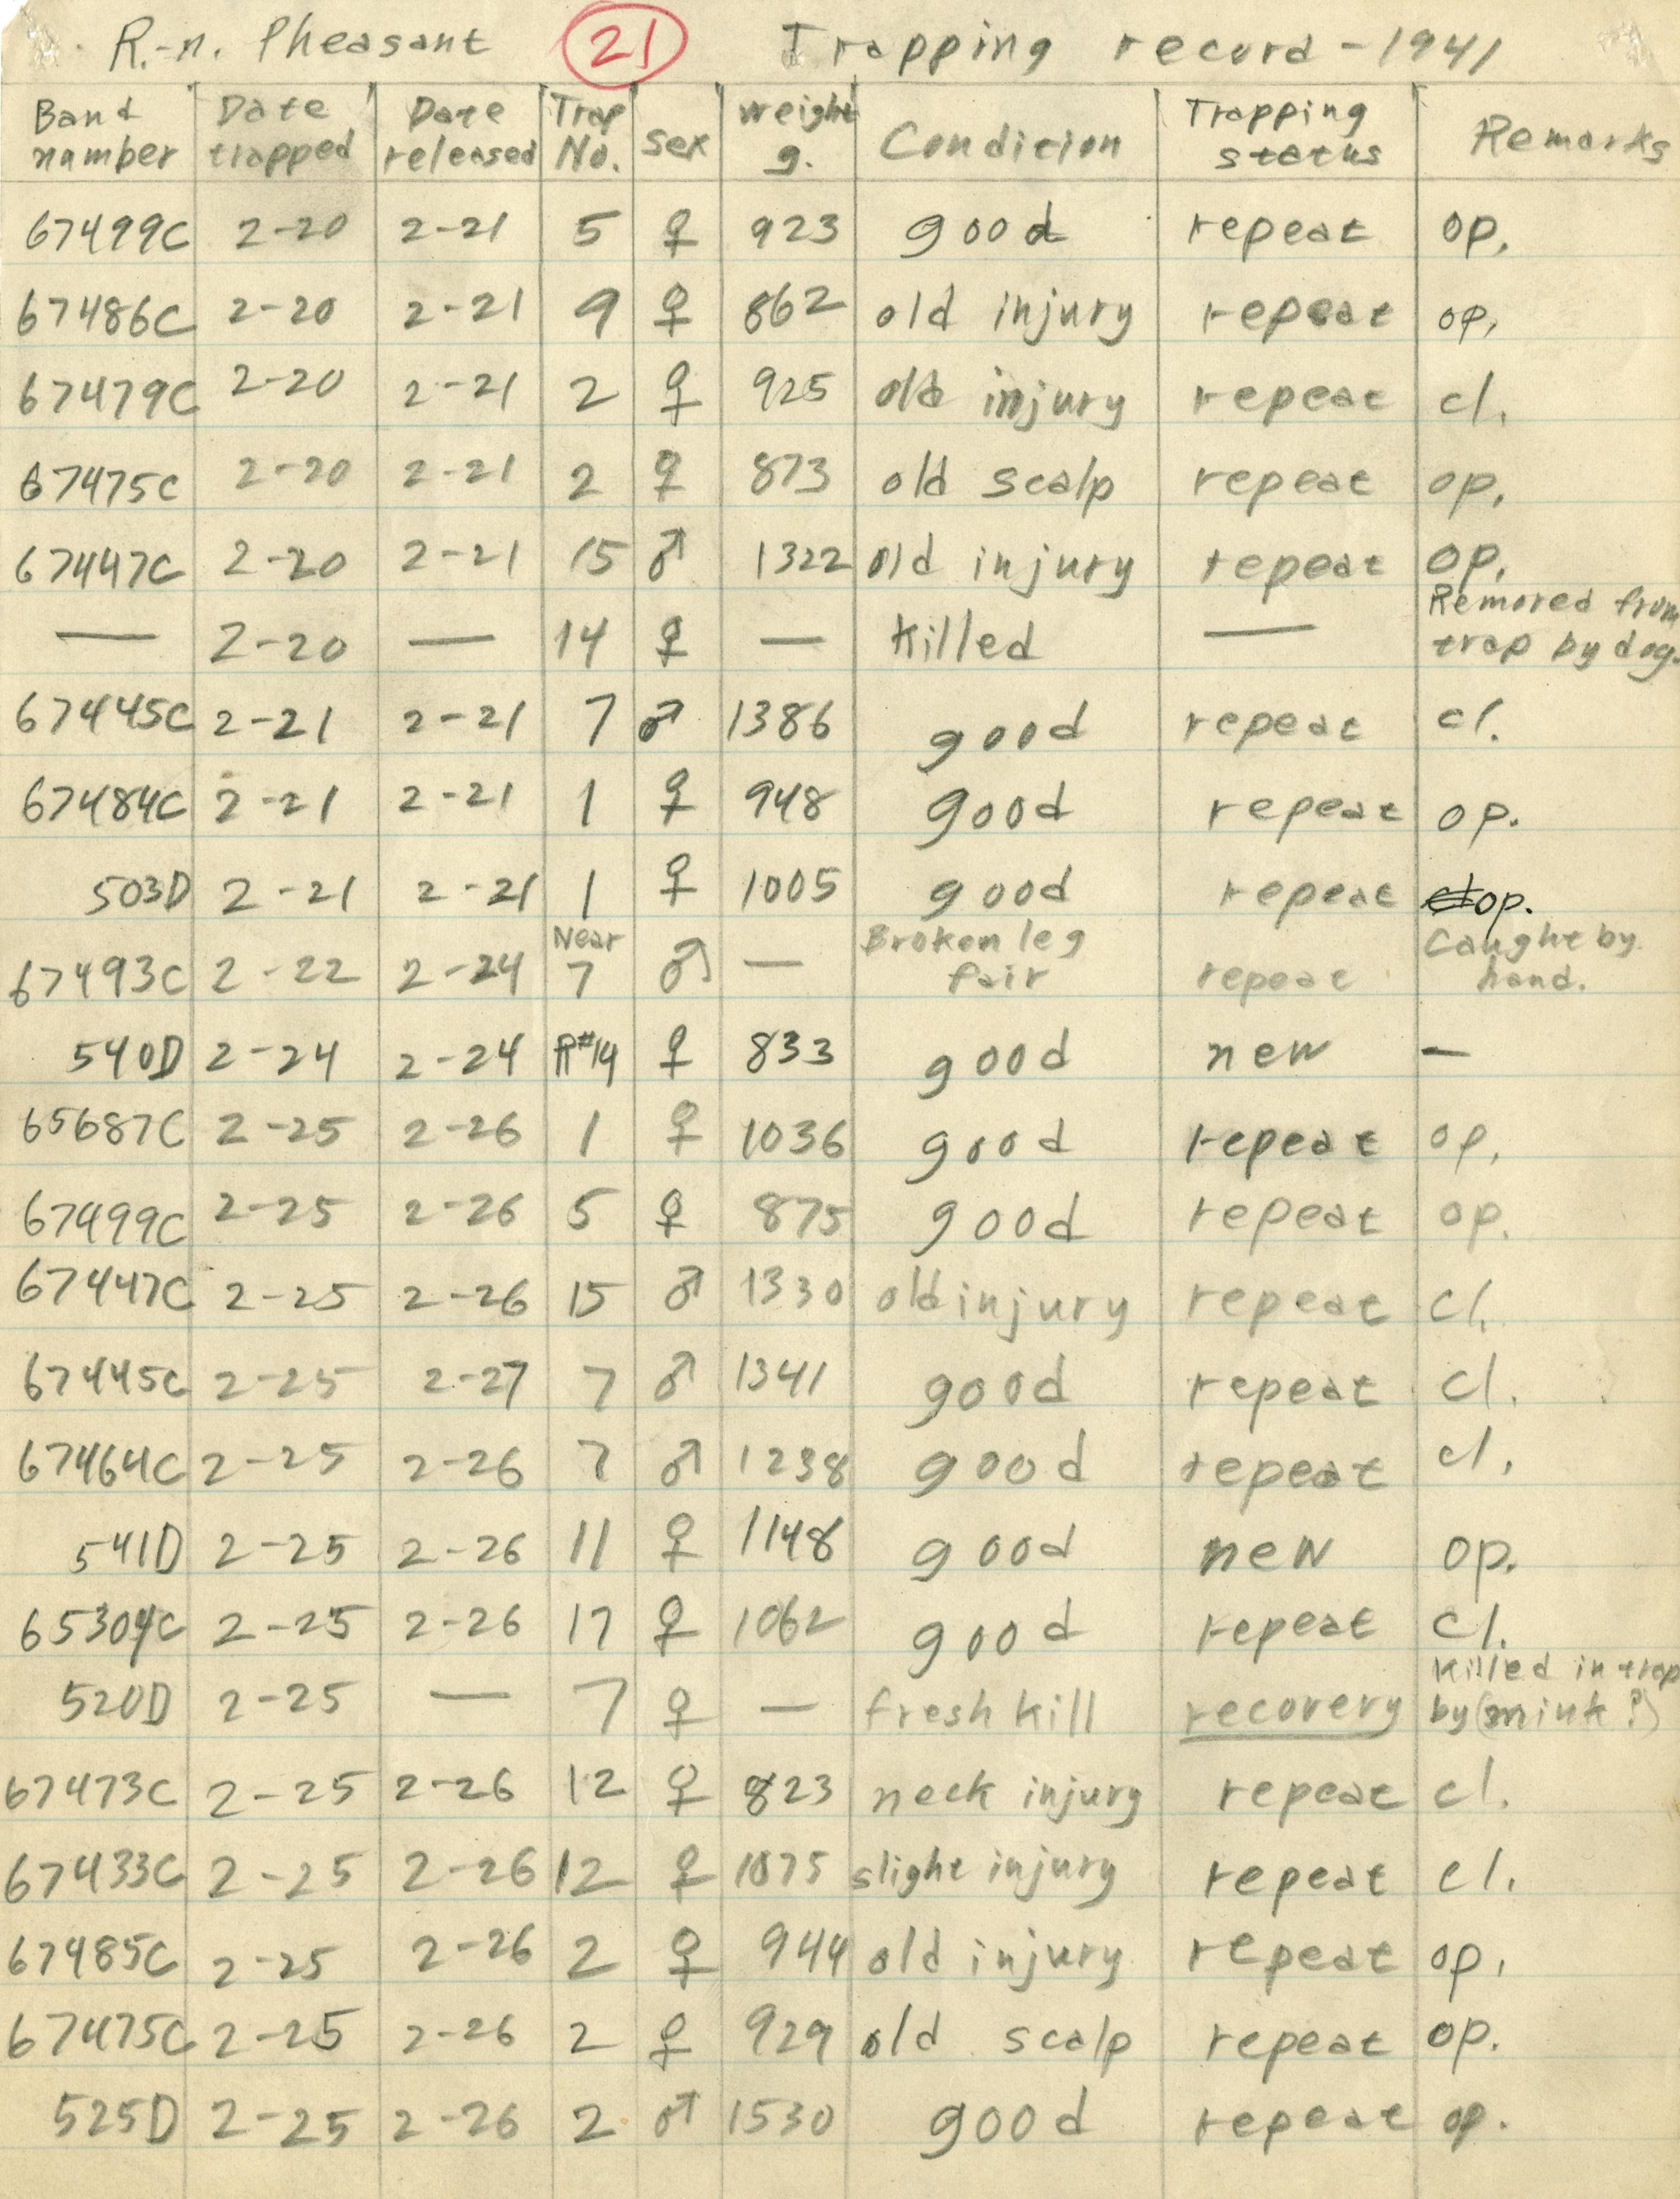 R.-n. Pheasant 21 Trapping record - 1941
Band number Date trapped Date released Trap No. Sex weight g. Condition Trapping status Remarks
67499C 2-20 2-21 5 ♀ 923 good repeat op.
67486C 2-20 2-21 9 ♀ 862 old injury repeat op.
67479C 2-20 2-21 2 ♀ 925 old injury repeat cl.
67475C 2-20 2-21 2 ♀ 873 old scalp repeat op.
67447C 2-20 2-21 15 ♂ 1322 old injury repeat op.
— 2-20 — 14 ♀ — Killed — Removed from trap by dog.
67445C 2-21 2-21 7 ♂ 1386 good repeat cl.
67484C 2-21 2-21 1 ♀ 948 good repeat op.
503D 2-21 2-21 1 ♀ 1005 good repeat op.
67493C 2-22 2-24 Near 7 ♂ — Broken leg fair repeat Caught by hand.
540D 2-24 2-24 R#14 ♀ 833 good new —
65687C 2-25 2-26 1 ♀ 1036 good repeat op.
67499C 2-25 2-26 5 ♀ 875 good repeat op.
67447C 2-25 2-26 15 ♂ 1330 old injury repeat cl.
67445C 2-25 2-27 7 ♂ 1341 good repeat cl.
67464C 2-25 2-26 7 ♂ 1238 good repeat cl.
541D 2-25 2-26 11 ♀ 1148 good new op.
65304C 2-25 2-26 17 ♀ 1062 good repeat cl.
520D 2-25 — 7 ♀ — fresh kill recovery Killed in trap by (mink?)
67473C 2-25 2-26 12 ♀ 823 neck injury repeat cl.
67433C 2-25 2-26 12 ♀ 1075 slight injury repeat cl.
67485C 2-25 2-26 2 ♀ 944 old injury repeat op.
67475C 2-25 2-26 2 ♀ 929 old scalp repeat op.
525D 2-25 2-26 2 ♂ 1530 good repeat op.